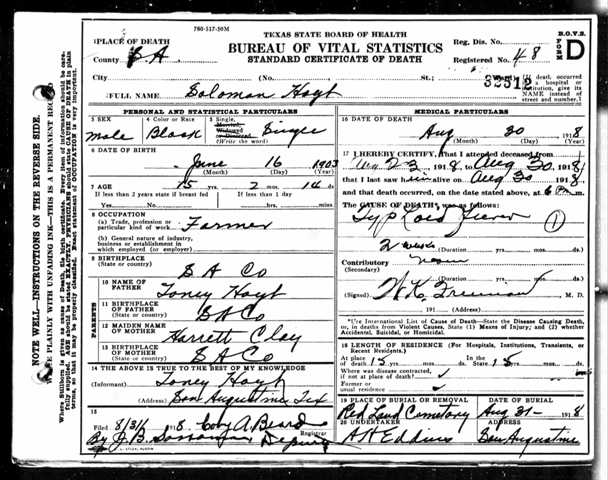 760-317-50M
TEXAS STATE BOARD OF HEALTH
BUREAU OF VITAL STATISTICS
STANDARD CERTIFICATE OF DEATH
B.O.V.S.
FORM D
PLACE OF DEATH
County S A.
Reg. Dis. No.
Registered No. 48
City (No. St.; Ward)
32312
(If death, occurred in a hospital or institution, give its NAME instead of street and number.)
FULL NAME Soloman Hoyt
PERSONAL AND STATISTICAL PARTICULARS
3 SEX
Male
4 Color or Race
Black
5 Single, Married, Widowed or Divorced (Write the word)
Single
6 DATE OF BIRTH
June 16 1903
(Month) (Day) (Year)
7 AGE 15 yrs. 2 mos. 14 ds.
If less than 2 years state if breast fed
If less than 1 day
Yes No hrs. min.
8 OCCUPATION
(a) Trade, profession or particular kind of work Farmer
(b) General nature of industry, business or establishment in which employed (or employer)
9 BIRTHPLACE
(State or country) S A Co
PARENTS
10 NAME OF FATHER Toney Hoyt
11 BIRTHPLACE OF FATHER
(State or country) S A Co
12 MAIDEN NAME OF MOTHER Harrett Clay
13 BIRTHPLACE OF MOTHER
(State or country) S A Co
14 THE ABOVE IS TRUE TO THE BEST OF MY KNOWLEDGE
(Informant) Toney Hoyt
(Address) San Augustine Tex
15
Filed 8/31/ 1918. Coby A Beard
Registrar
By J.B. Deputy
MEDICAL PARTICULARS
16 DATE OF DEATH
Aug 30 1918
(Month) (Day) (Year)
17 I HEREBY CERTIFY, that I attended deceased from
Aug 23 1918, to Aug 30, 1918
that I last saw him alive on Aug 30 1918,
and that death occurred, on the date stated above, at 6 P m.
The CAUSE OF DEATH was as follows:
Typhoid Fever 1
2 weeks
(Duration) yrs. mos. ds.
Contributory
(Secondary)
(Duration) yrs. mos. ds.
(Signed) M. D.
, 191 (Address)
*Use International List of Cause of Death—State the Disease Causing Death, or, in deaths from Violent Causes, State (1) Means of Injury; and (2) whether Accidental, Suicidal, or Homicidal.
18 LENGTH OF RESIDENCE (For Hospitals, Institutions, Transients, or Recent Residents.)
At place 15 yrs. mos. ds. In the State 15 yrs. mos. ds.
Where was disease contracted, if not at place of death?
Former or usual residence
19 PLACE OF BURIAL OR REMOVAL
Red Land Cemetery
DATE OF BURIAL
Aug 31- 1918
20 UNDERTAKER
A H Eddins
ADDRESS
San Augustine
NOTE WELL—INSTRUCTIONS ON THE REVERSE SIDE.
WRITE PLAINLY WITH UNFADING INK—THIS IS A PERMANENT RECORD